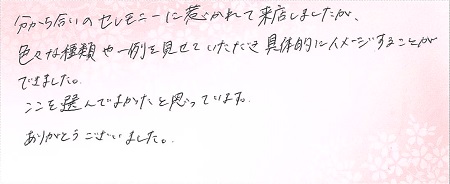 分かち合いのセレモニーに惹かれて来店しましたが、
色々な種類や一例を見せていただき具体的にイメージすることが
できました。
ここを選んでよかったと思っています。
ありがとうございました。